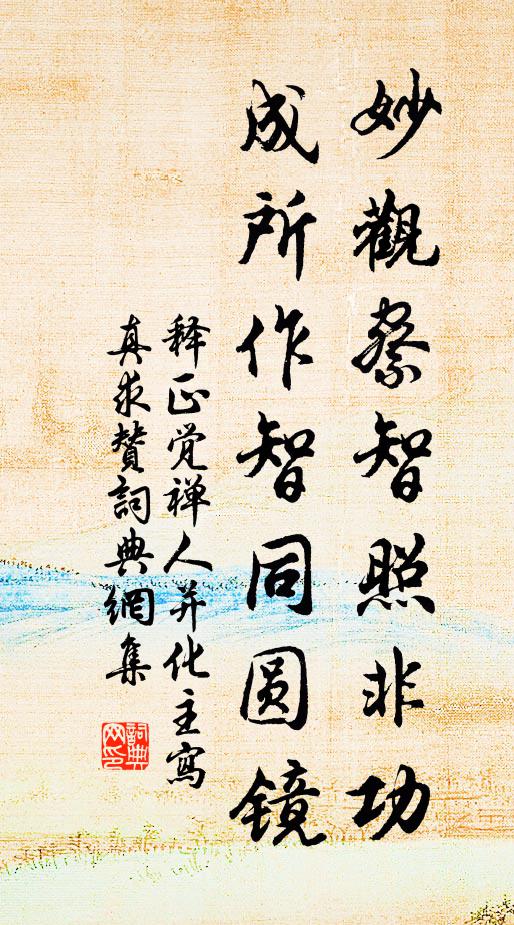 妙觀察智照非功
成所作智同圆鏡
释正觉禅人并化主寫
真求贊詞典網集
詞典网印